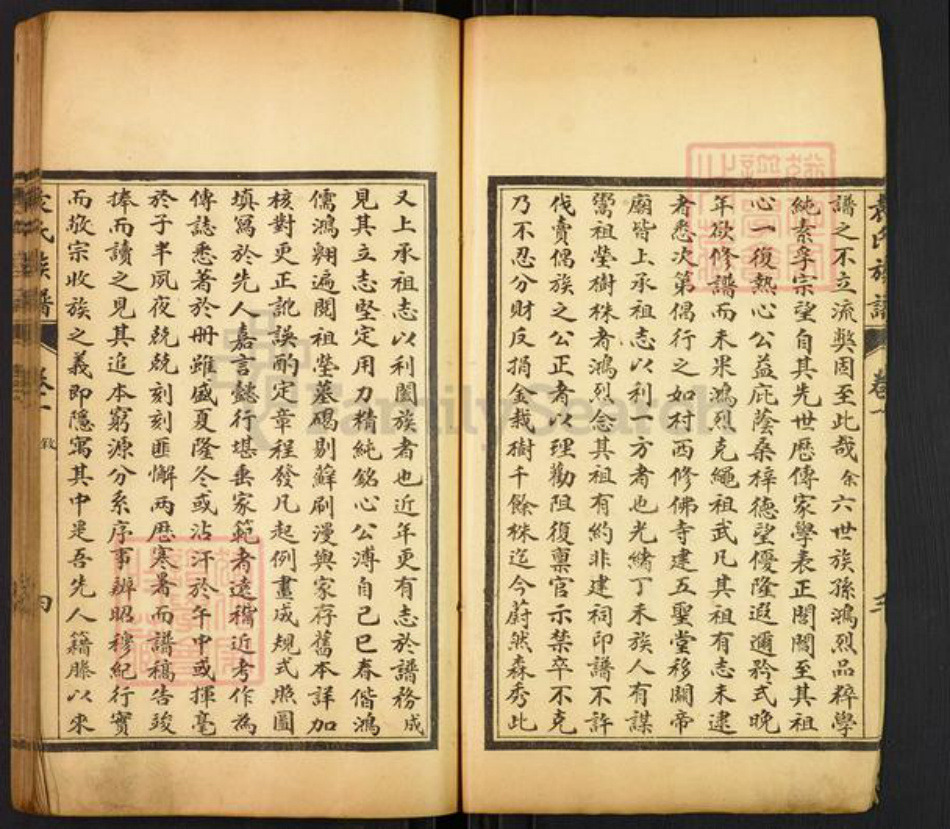 譜之不立流弊固至此哉余六世族孫鴻烈品粹學
純素孚宗望自其先世歷傳家學表正閭閻至其祖
心一復熱心公益庇蔭桑梓德望優隆遐邇矜式晚
年欲修譜而未果鴻烈克繩祖武凡其祖有志未逮
者悉次第偶行之如村西修佛寺建五聖堂移關帝
廟皆上承祖志以利一方者也光緒丁未族人有謀
鬻祖塋樹株者鴻烈念其祖有約非建祠印譜不許
伐賣偶族之公正者以理勸阻復稟官示禁卒不克
乃不忍分財反捐金栽樹千餘株迄今蔚然森秀此
又上承祖志以利闔族者也近年更有志於譜務成
見其立志堅定用力精純銘心公溥自己巳春偕鴻
儒鴻翱遍閱祖塋墓碣剔蘚刷漫與家存舊本詳加
核對更正訛誤酌定章程發凡起例畫成規式照圖
填寫於先人嘉言懿行堪垂家範者遠稽近考作為
傳誌悉著於冊雖盛夏隆冬或沾汗於午中或揮毫
於子半夙夜兢兢刻刻匪懈兩歷寒暑而譜稿告竣
捧而讀之見其追本窮源分系序事辨昭穆紀行實
而敬宗收族之義即隱寓其中是吾先人籍滕以來
袁氏族譜 卷一 三
氏族譜 卷一 敘 四
FamilySearch